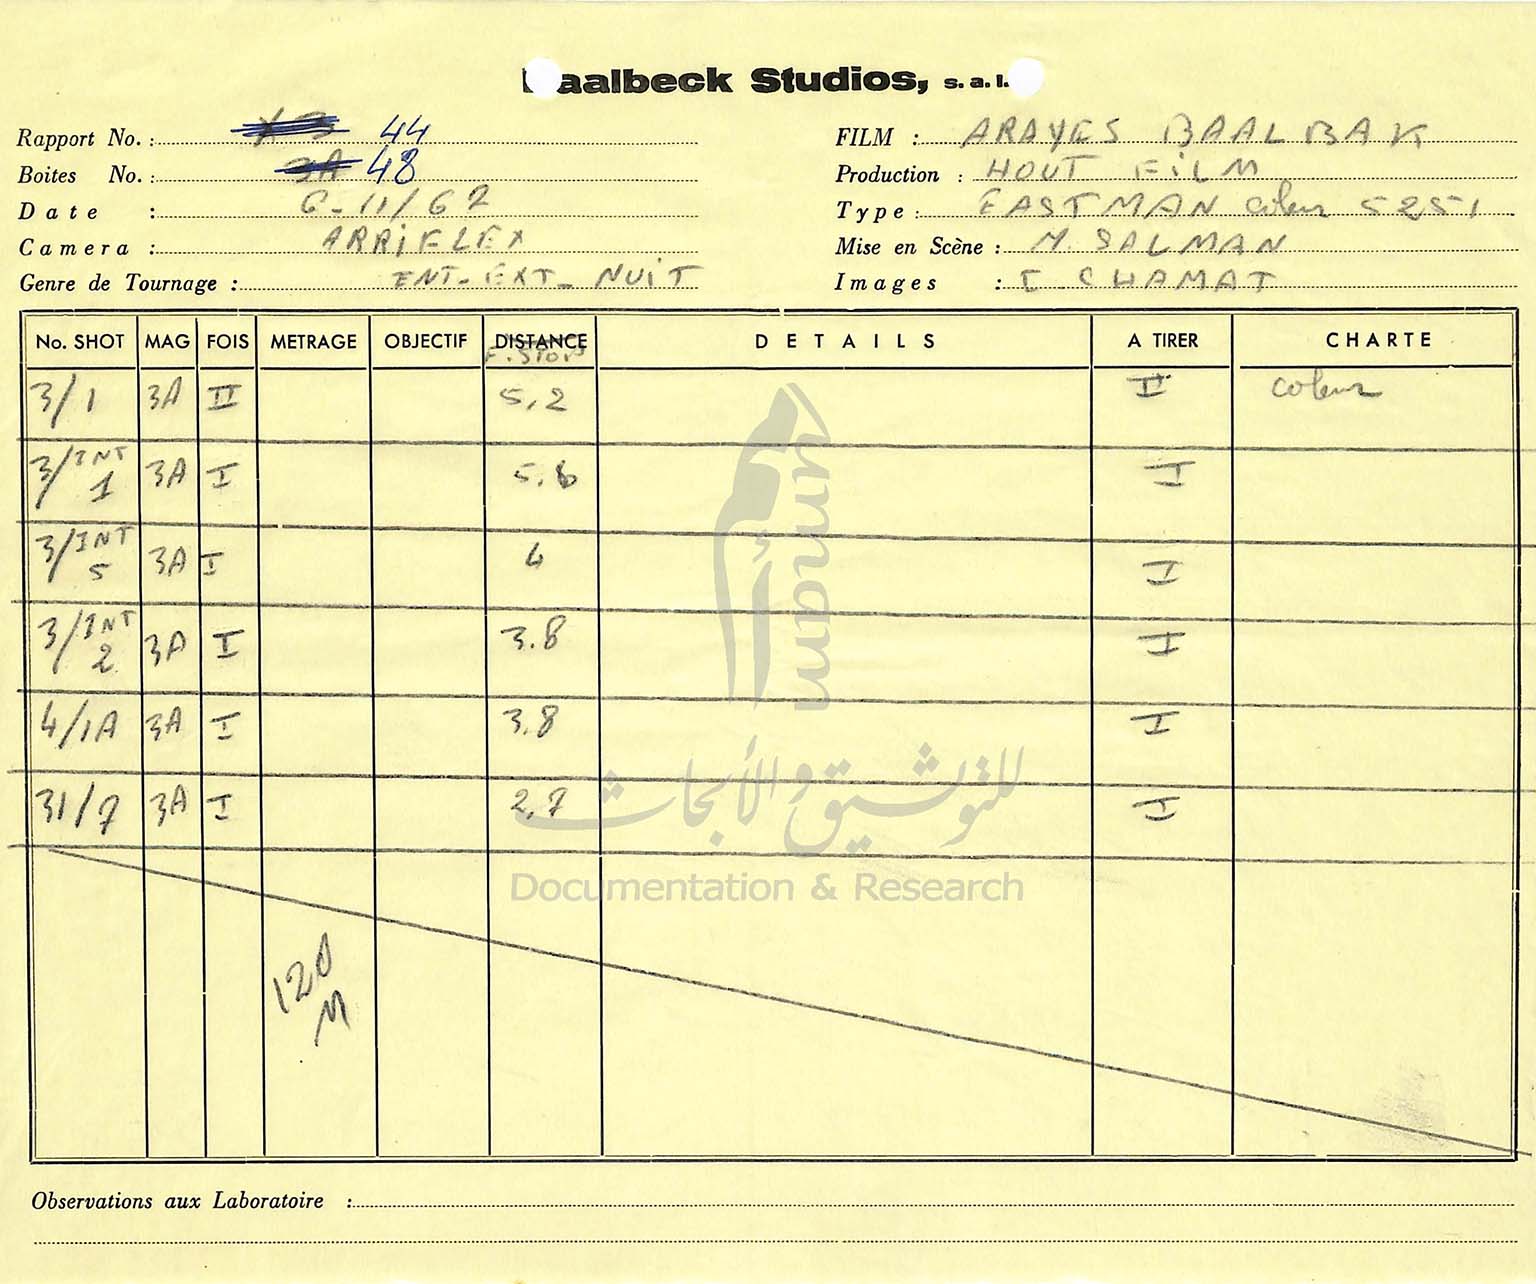 aalbeck Studios, s.a.l.
Rapport No. : 44
Boites No. : 48
Date : 6-11/62
Camera : ARRIFLEX
Genre de Tournage : INT-EXT- NUIT
FILM : ARAYES BAALBAK
Production : HOUT FILM
Type : EASTMAN 5251
Mise en Scène : M. SALMAN
Images : I. CHAMAT
No. SHOT MAG FOIS METRAGE OBJECTIF DISTANCE DETAILS A TIRER CHARTE
F. STOP
3/1 3A II 5,2 II
3/INT 1 3A I 5,6 I
3/INT 5 3A I 4 I
3/INT 2 3A I 3.8 I
4/1A 3A I 3.8 I
31/7 3A I 2,7 I
120 M
Observations aux Laboratoire :
umam
أمم
للتوثيق والأبحاث
Documentation & Research